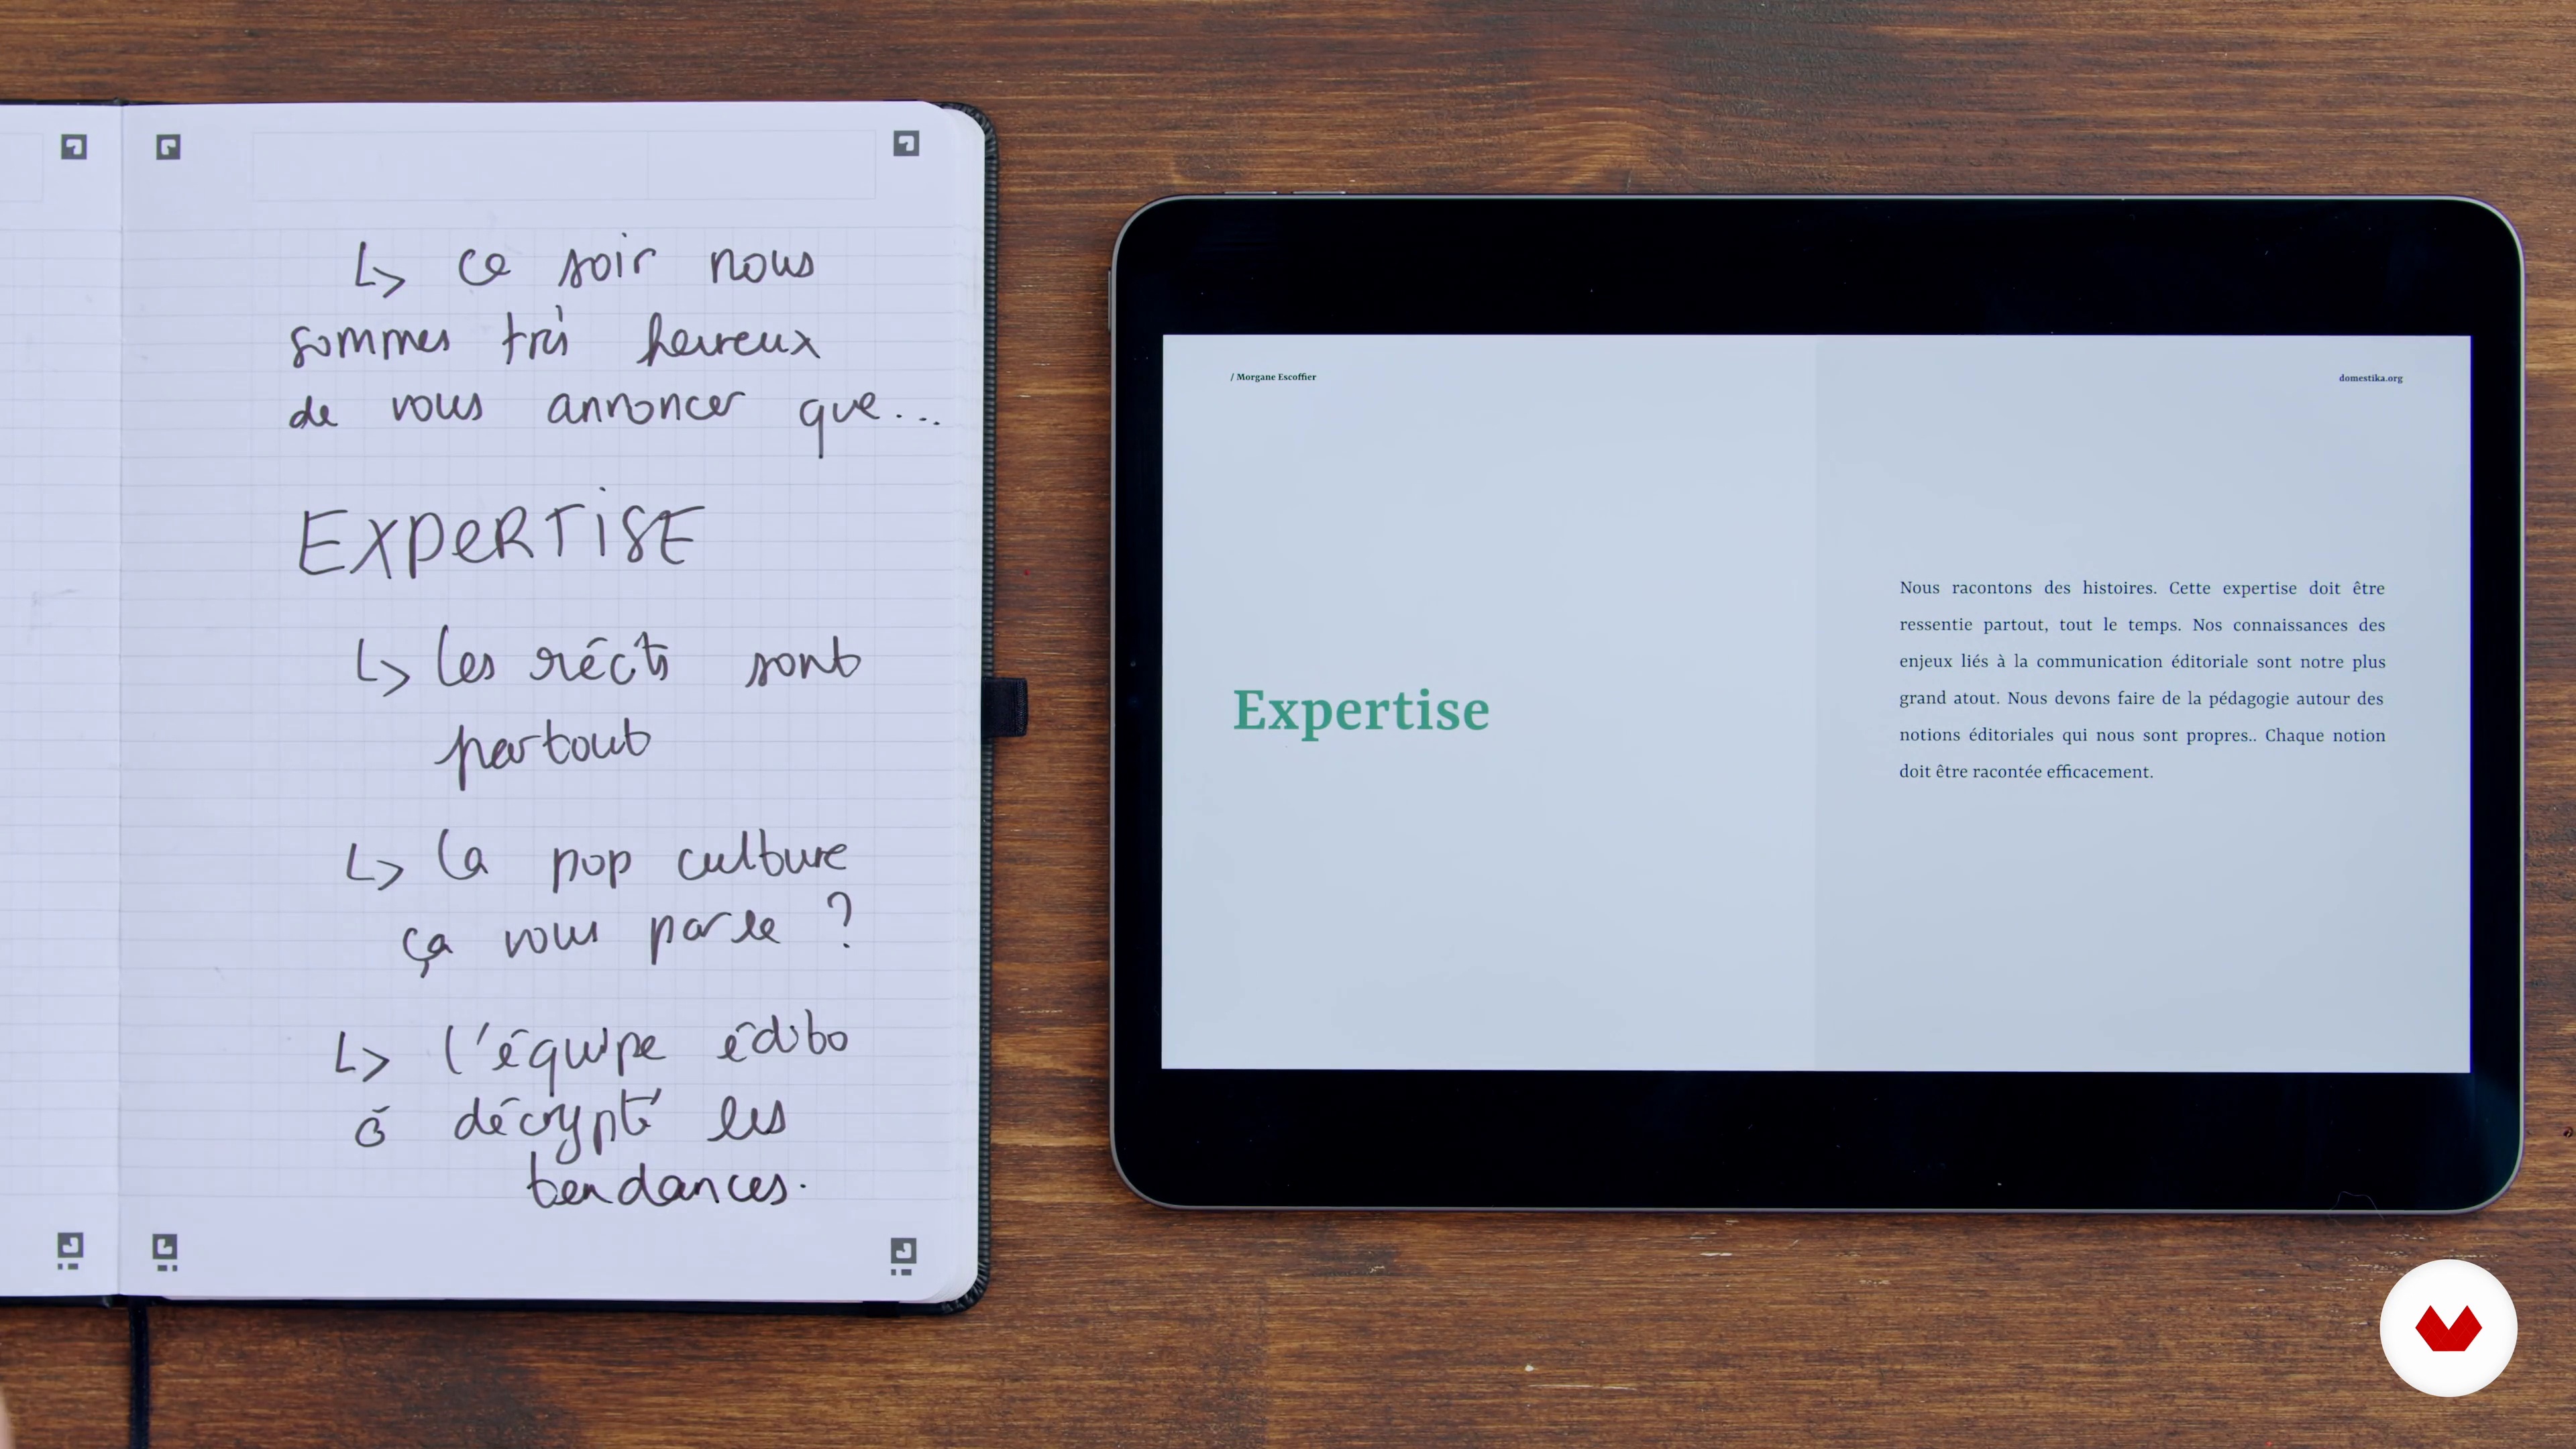 ↳ ce soir nous
sommes très heureux
de vous annoncer que...
EXPERTISE
↳ les récits sont
partout
↳ la pop culture
ça vous parle ?
↳ l'équipe édito
à décrypté les
tendances.
/ Morgane Escoffier
domestika.org
Expertise
Nous racontons des histoires. Cette expertise doit être
ressentie partout, tout le temps. Nos connaissances des
enjeux liés à la communication éditoriale sont notre plus
grand atout. Nous devons faire de la pédagogie autour des
notions éditoriales qui nous sont propres.. Chaque notion
doit être racontée efficacement.